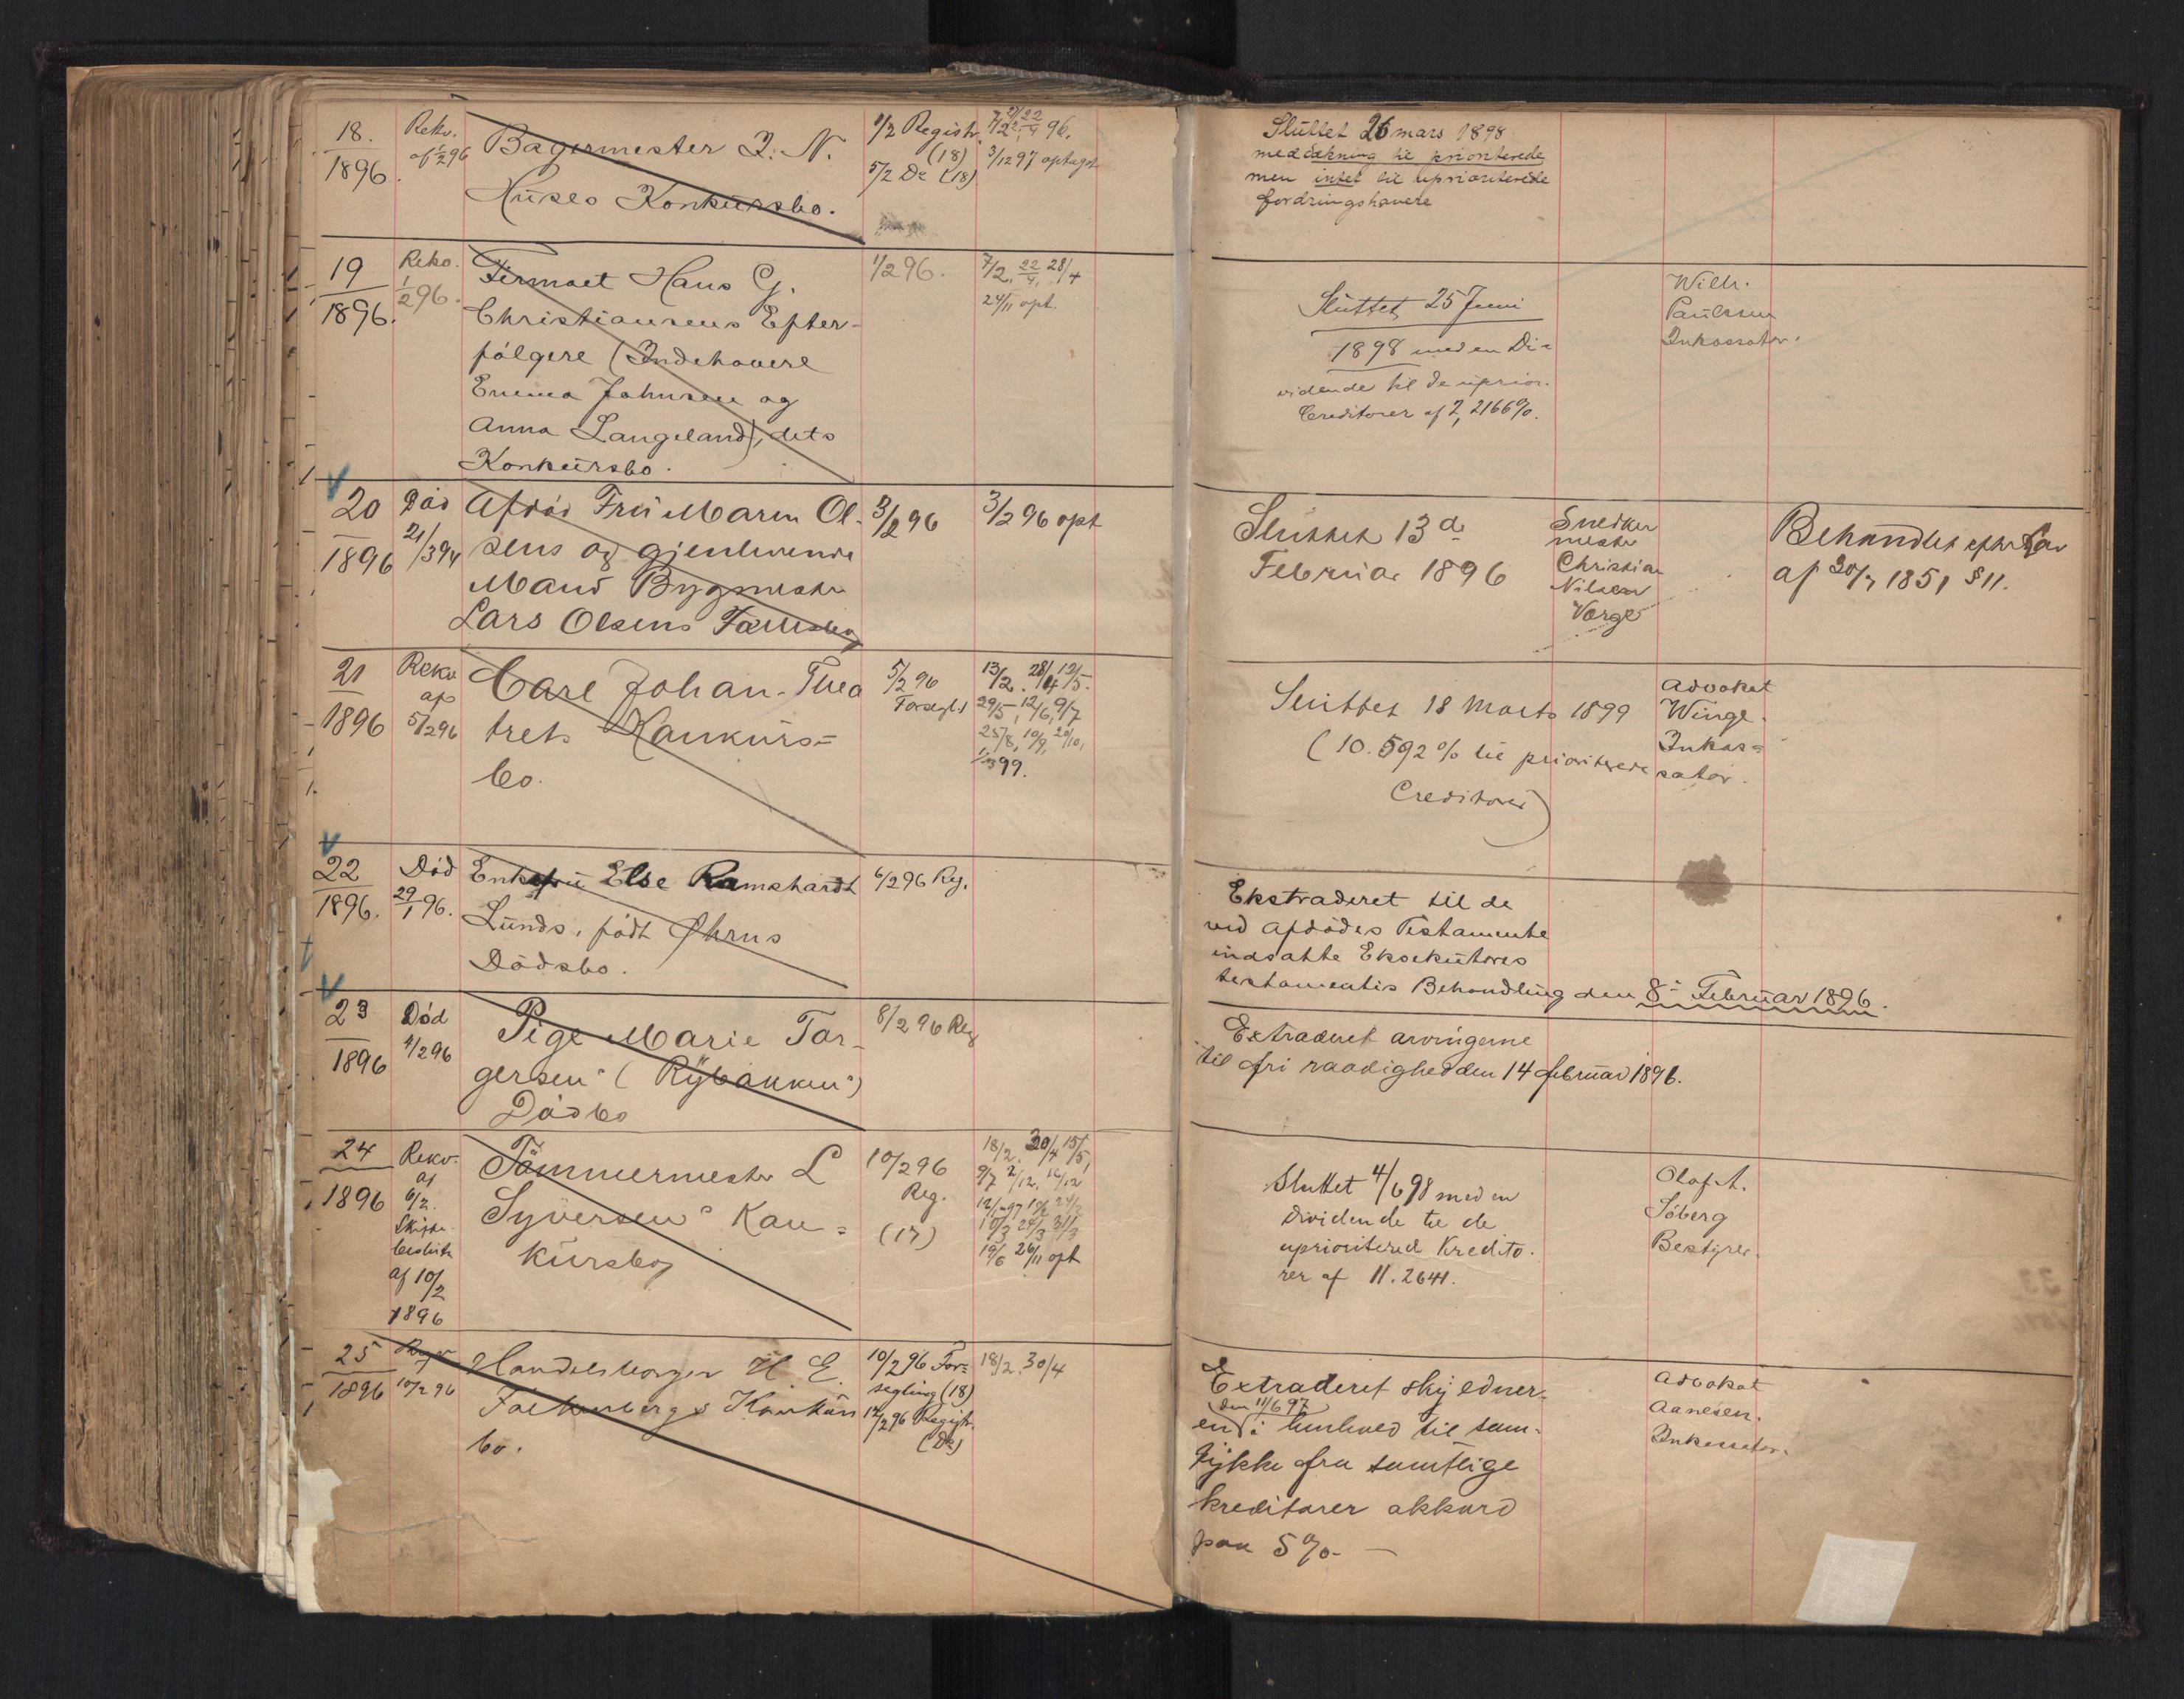 18.
1896.
Rekv.
af 1/2 96
Bagermester J. N.
Huseo Konkursbo.
1/2 Registr.
(18)
5/2 Do (18)
7/2 22/4 96.
3/12 97 optaget
Sluttet 26 mars 1898
med dækning til prioriterede
men intet til uprioriterede
fordringshavere
19
1896.
Rekv.
1/2 96.
Firmaet Hans G.
Christiansens Efter-
følgere (Indehavere
Emma Johnsen og
Anna Langeland), dets
Konkursbo.
1/2 96.
7/2, 22/4, 28/4
24/11 opt.
Sluttet 25 Juni
1898 med en Di-
vidende til de uprior.
Creditorer af 2,2166%.
Wilh.
Paulsen
Inkassator.
20
1896
Død
21/3 94
Afdød Fru Maren Ol-
sens og gjenlevende
Mand Bygmester
Lars Olsens Fællesbo
3/2 96
3/2 96 opt
Sluttet 13de
Februar 1896
Snedker
mester
Christian
Nilsen
Værge
Behandlet efter Lov
af 30/7 1851 § 11.
21
1896
Rekv
af
5/2 96
Carl Johan-Thea
trets Konkurs=
bo.
5/2 96
Forsegl.
13/2. 28/4 12/5.
29/5, 12/6, 9/7
25/8, 10/9, 20/10,
1/3 99.
Sluttet 18 Marts 1899
(10.592% til prioriterede
Creditorer)
Advokat
Winge.
Inkas=
sator.
22
1896.
Død
29/1 96.
Enkefru Else Ramshardt
Lunds, født Øhrns
Dødsbo.
6/2 96 Reg.
Ekstraderet til de
ved Afdødes Testamente
indsatte Eksekutores
testamentis Behandling den 8de Februar 1896.
23
1896
Død
4/2 96
Pige Marie Tor-
gersen's (Rybakken)
Dødsbo
8/2 96 Reg
Extraderet arvingerne
til fri raadighed den 14 februar 1896.
24
1896
Rekv.
af
6/2.
Skifte-
beslutn
af 10/2
1896
Tømmermester L
Syversens Kon=
kursbo
10/2 96
Reg.
(17)
18/2. 30/4 15/5,
26/11 opt
Sluttet 4/6 98 med en
Dividende til de
uprioriterede Kredito-
rer af 11.2641.
Olaf A.
Søberg
Bestyrer.
25
1896
Rekv
10/2 96
Handelsborger H. E.
Falkenbergs Konkurs
bo.
10/2 96 For=
segling (18)
12/2 96 Registr.
(Do)
18/2. 30/4
Extraderet skyldner-
den 11/6 97
en i henhold til sam-
tykke fra samtlige
kreditorer akkord
paa 5%. —
Advokat
Aanesen.
Inkassator.